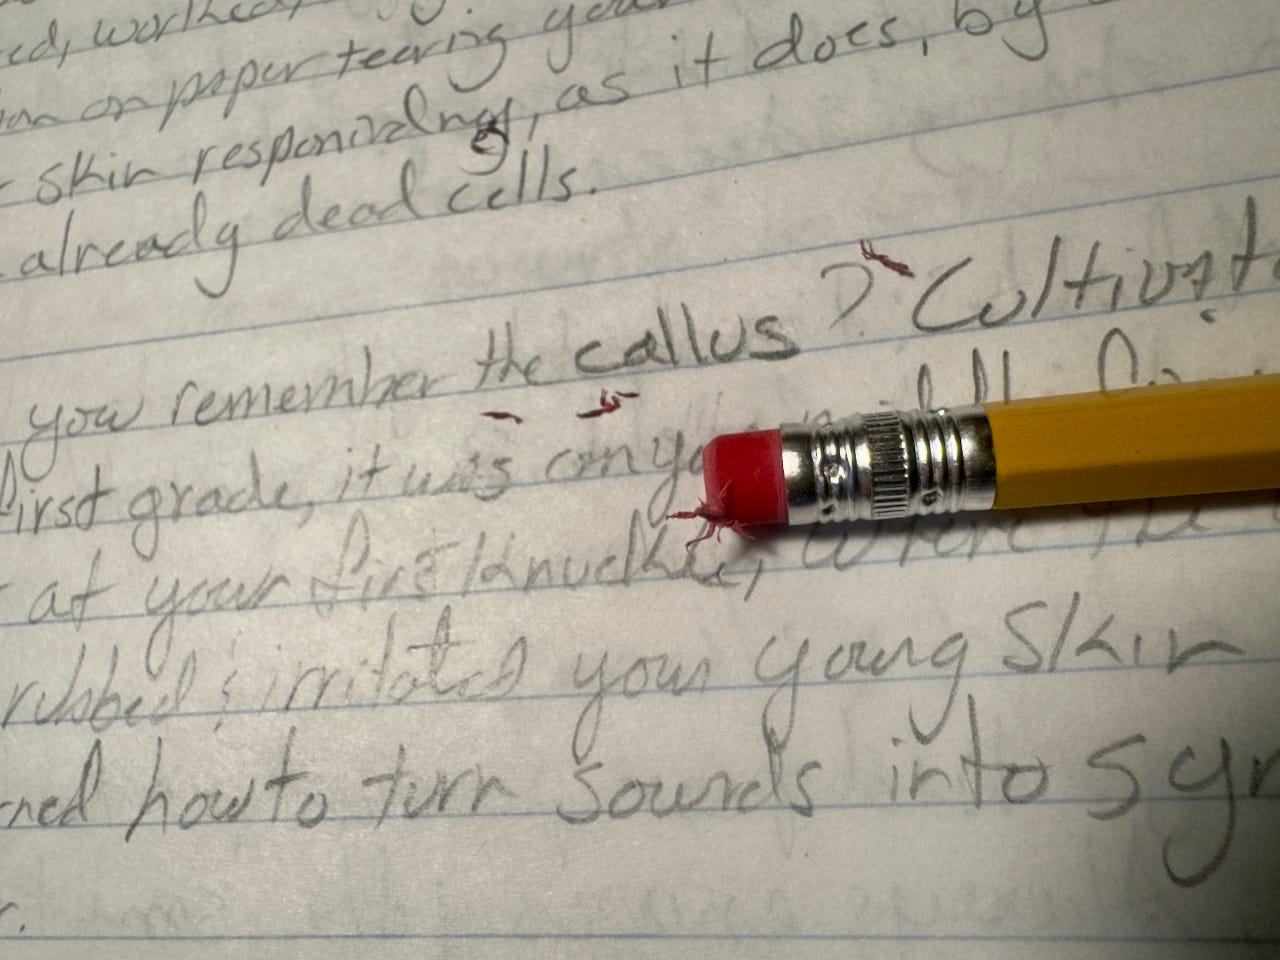 ed, worked,
on paper tearing your
skin responding, as it does, by
already dead cells.
you remember the callus? Cultivat
first grade, it was on yo
at your first knuckle, where the
rubbed & irritated your young skin
ned how to turn sounds into sy
r.